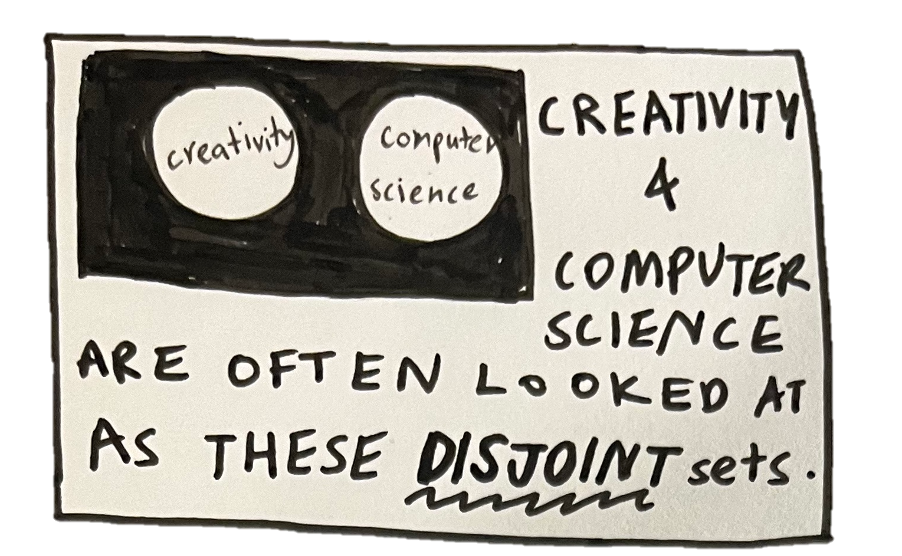 creativity
computer
science
CREATIVITY
&
COMPUTER
SCIENCE
ARE OFTEN LOOKED AT
AS THESE DISJOINT sets.